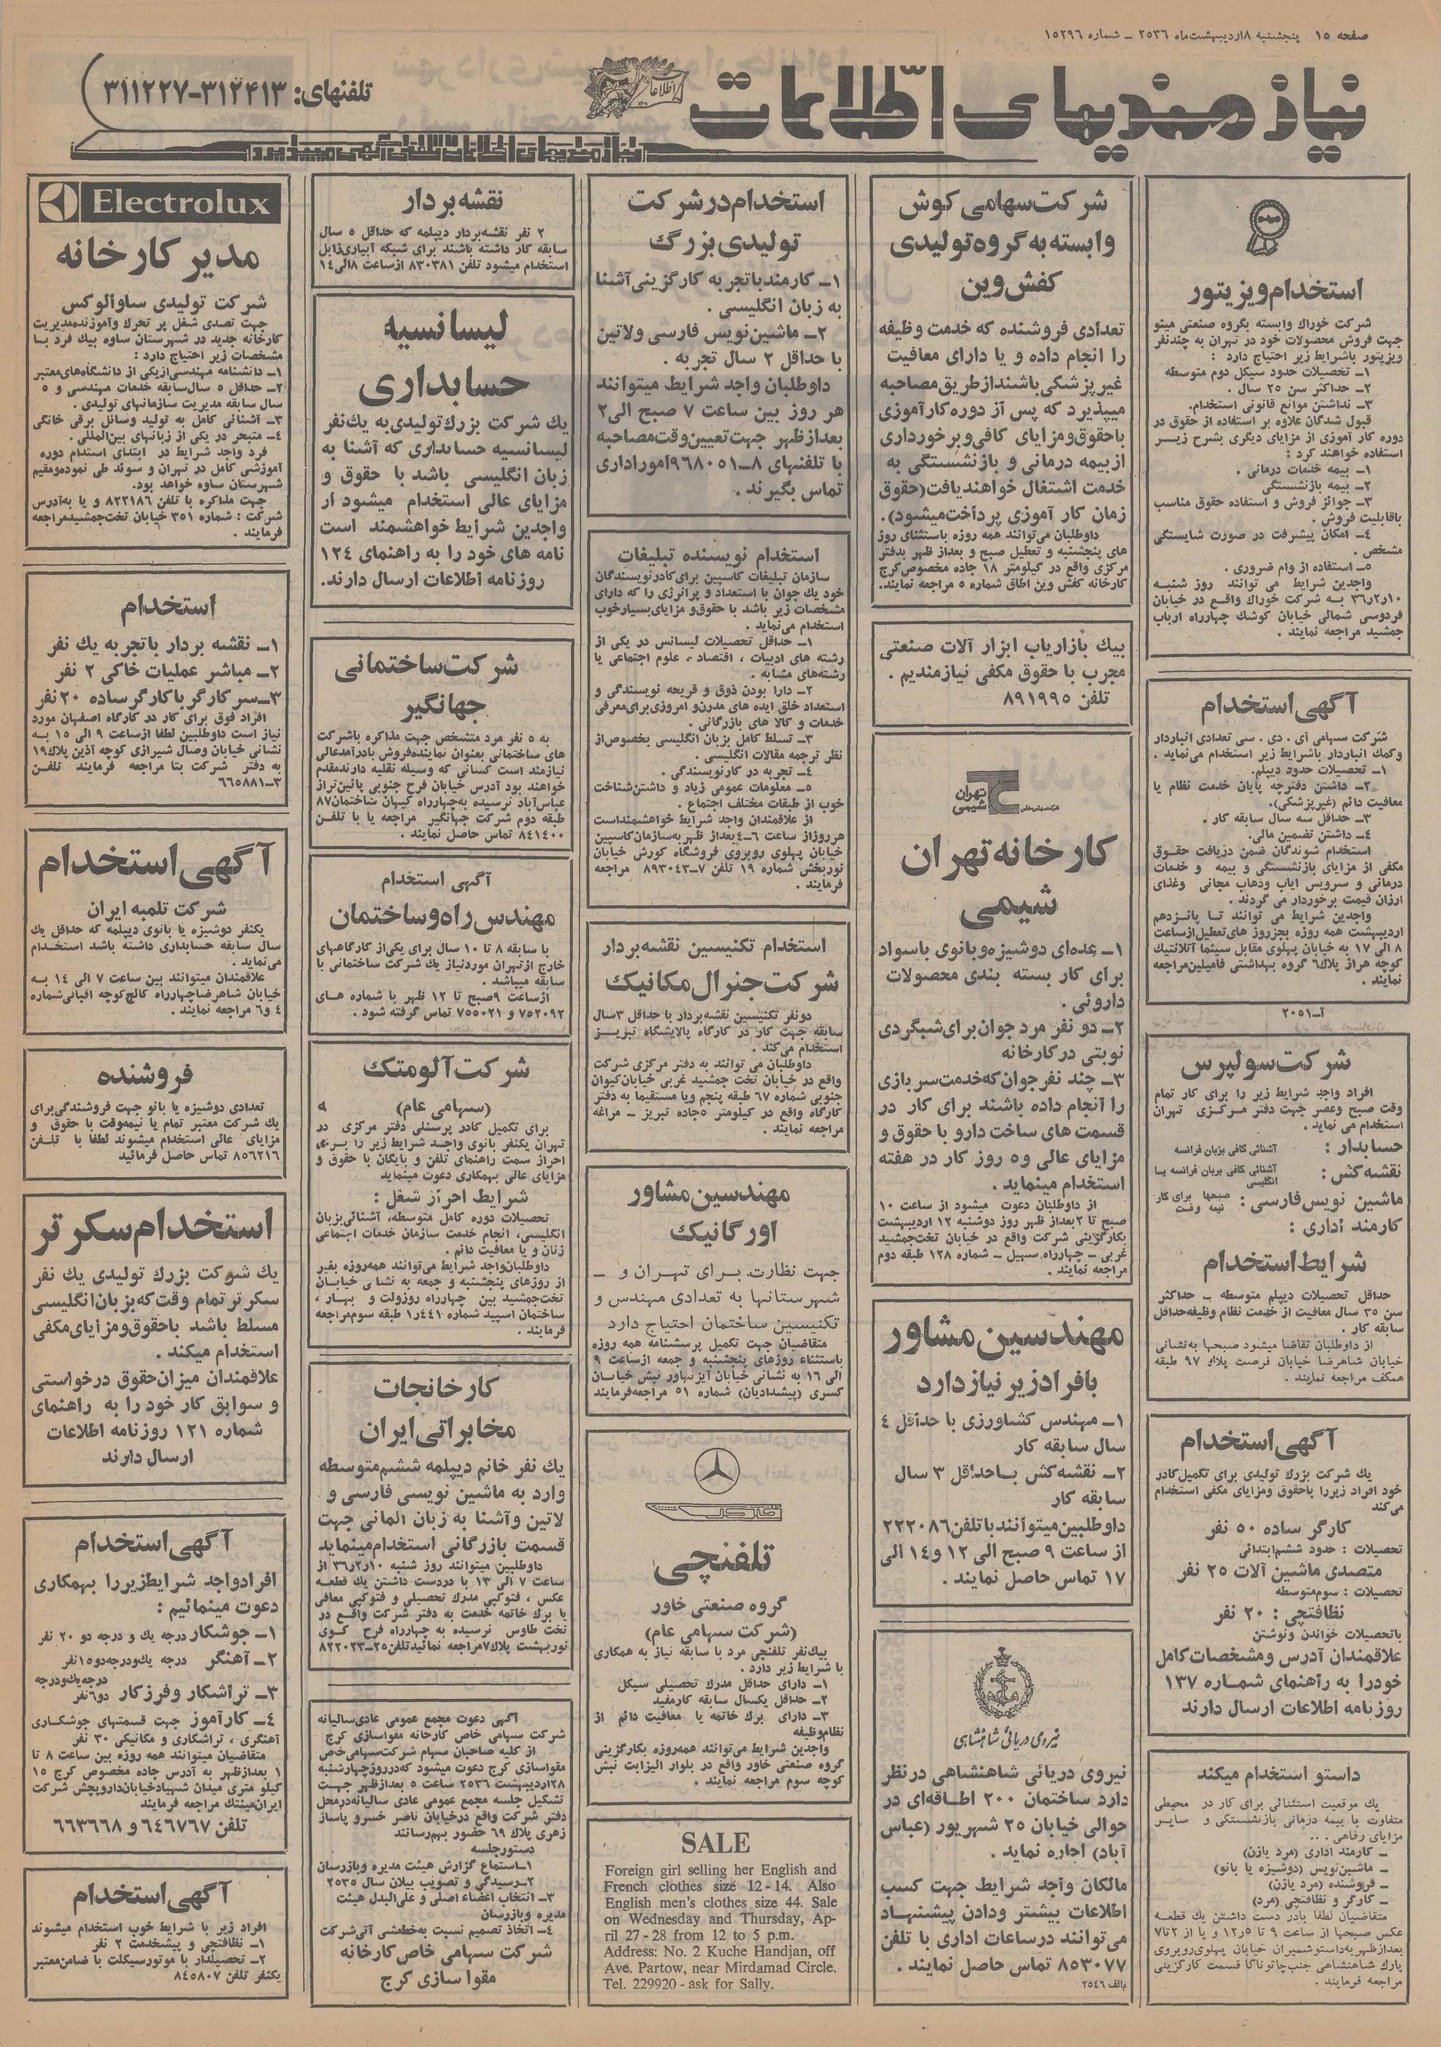 صفحه ۱۵ پنجشنبه ۸ اردیبهشت ماه ۲۵۳۶ – شماره ۱۵۲۹۶
نیازمندیهای اطلاعات
تلفنهای: ۳۱۲۴۱۳-۳۱۱۲۲۷
نیازمندیهای اطلاعات تلفنی آگهی میپذیرد
استخدام ویزیتور
شرکت خوراك وابسته بگروه صنعتی مینو
جهت فروش محصولات خود در تهران به چندنفر
ویزیتور باشرایط زیر احتیاج دارد :
۱ـ تحصیلات حدود سیکل دوم متوسطه
۲ـ حداکثر سن ۲۵ سال .
۳ـ نداشتن موانع قانونی استخدام.
قبول شدگان علاوه بر استفاده از حقوق در
دوره کار آموزی از مزایای دیگری بشرح زیـر
استفاده خواهند کرد :
۱ـ بیمه خدمات درمانی .
۲ـ بیمه بازنشستگی
۳ـ جوائز فروش و استفاده حقوق مناسب
باقابلیت فروش .
۴ـ امکان پیشرفت در صورت شایستگی
مشخص .
۵ـ استفاده از وام ضروری .
واجدین شرایط می توانند روز شنبـه
۳۶ر۲ر۱۰ بـه شرکت خوراك واقع در خیابان
فردوسی شمالی خیابان کوشك چهارراه ارباب
جمشید مراجعه نمایند .
آگهی استخدام
شرکت سهامی آی . دی . سی تعدادی انباردار
وکمك انباردار باشرایط زیر استخدام می‌نماید .
۱ـ تحصیلات حدود دیپلم.
۲ـ داشتن دفترچه پایان خدمت نظام یا
معافیت دائم (غیرپزشکی).
۳ـ حداقل سه سال سابقه کار .
۴ـ داشتن تضمین مالی.
استخدام شوندگان ضمن دریافت حقـوق
مکفی از مزایای بازنشستگی و بیمه و خدمات
درمانی و سرویس ایاب وذهاب مجانی وغذای
ارزان قیمت برخوردار می گردند .
واجدین شرایط می توانند تـا پانـزدهم
اردیبهشت همه روزه بجزروز های‌تعطیل‌ازساعت
۸ الی ۱۷ به خیابان پهلوی مقابل سینما آتلانتیك
کوچه هراز پلاك۶ گروه بهداشتی فامیلین‌مراجعه
نمایند .
آـ۲۰۵۱
شرکت سولپرس
افراد واجد شرایط زیر را برای کار تمام
وقت صبح وعصر جهت دفتر مـرکـزی تهران
استخدام می نماید .
حسابدار : آشنائی کافی بزبان فرانسه
نقشه‌کش : آشنائی کافی بزبان فرانسه یـا انگلیسی
ماشین نویس فارسی : صبحها برای کار نیمه وقت
کارمند اداری :
شرایط استخدام
حداقل تحصیلات دیپلم متوسطه – حداکثر
سن ۳۵ سال معافیت از خدمت نظام وظیفه‌حداقل
سابقه کار .
از داوطلبان تقاضا میشود صبحها به‌نشانی
خیابان شاهرضا خیابان فرصت پلاك ۹۷ طبقه
همکف مراجعه نمایند .
آگهی استخدام
یك شرکت بزرك تولیدی برای تکمیل‌کادر
خود افراد زیررا باحقوق ومزایای مکفی استخدام
می‌کند
کارگر ساده ۵۰ نفر
تحصیلات : حدود ششم‌ابتدائی
متصدی ماشین آلات ۲۵ نفر
تحصیلات : سوم‌متوسطه
نظافتچی : ۲۰ نفر
باتحصیلات خواندن ونوشتن
علاقمندان آدرس ومشخصات کامل
خودرا به راهنمای شمـاره ۱۳۷
روزنامه اطلاعات ارسال دارند
داستو استخدام میکند
یك موقعیت استثنائی برای کار در محیطی
متفاوت با بیمه درمانی بازنشستگی و سایـر
مزایای رفاهی . . .
– کارمند اداری (مرد یازن)
– ماشین‌نویس (دوشیزه یا بانو)
– فروشنده (مرد یازن)
– کارگر و نظافتچی (مرد)
متقاضیان لطفا بادر دست داشتن یك قطعـه
عکس صبحها از ساعت ۹ تا ۱۲ر۵ و یا از ۲ تا۷
بعدازظهر به‌داستوشمیران خیابان پهلوی‌روبروی
پارك شاهنشاهی جنب‌چاتونوگا قسمت کارگزینی
مراجعه فرمایند .
شرکت سهامی کوش
وابسته به گروه تولیدی
کفش وین
تعدادی فروشنده که خدمت وظیفه
را انجام داده و یا دارای معافیت
غیرپزشکی باشنداز طریق مصاحبه
میپذیرد که پس از دوره کارآموزی
باحقوق‌ومزایای کافی‌وبرخورداری
ازبیمه درمانی و بازنشستگی به
خدمت اشتغال خواهندیافت(حقوق
زمان کار آموزی پرداخت‌میشود).
داوطلبان می‌توانند همه روزه باستثنای روز
های پنجشنبه و تعطیل صبح و بعداز ظهر بدفتر
مرکزی واقع در کیلومتر ۱۸ جاده مخصوص‌کرج
کارخانه کفش وین اطاق شماره ۵ مراجعه نمایند.
بیك بازاریاب ابزار آلات صنعتی
مجرب با حقوق مکفی نیازمندیم .
تلفن ۸۹۱۹۹۵
تهران شیمی
کارخانه تهران
شیمی
۱ـ عده‌ای دوشیزه وبانوی باسواد
برای کار بسته بندی محصولات
داروئی .
۲ـ دو نفر مرد جوان برای شبگردی
نوبتی در کارخانه
۳ـ چند نفر جوان‌که خدمت سربازی
را انجام داده باشند برای کار در
قسمت های ساخت دارو با حقوق و
مزایای عالی و۵ روز کار در هفته
استخدام مینماید .
از داوطلبان دعوت میشود از ساعت ۱۰
صبح تا ۲بعداز ظهر روز دوشنبه ۱۲ اردیبهشت
بکارگزینی شرکت واقع در خیابان تخت‌جمشید
غربی – چهارراه سهیل – شماره ۱۲۸ طبقه دوم
مراجعه نمایند .
مهندسین مشاور
با فراد زیر نیاز دارد
۱ـ مهندس کشاورزی با حداقل ۴
سال سابقه کار
۲ـ نقشه‌کش بـاحداقل ۳ سال
سابقه کار
داوطلبین‌میتوانندباتلفن۲۲۲۰۸۶
از ساعت ۹ صبح الی ۱۲ و۱۴ الی
۱۷ تماس حاصل نمایند .
نیروی دریائی شاهنشاهی
نیروی دریائی شاهنشاهی در نظر
دارد ساختمان ۲۰۰ اطاقه‌ای در
حوالی خیابان ۲۵ شهریور (عباس
آباد) اجاره نماید .
مالکان واجد شرایط جهت کسب
اطلاعات بیشتر ودادن پیشنهـاد
می‌توانند درساعات اداری با تلفن
۸۵۳۰۷۷ تماس حاصل نمایند .
م‌الف ۲۵۴۶
استخدام در شرکت
تولیدی بزرگ
۱ـ کارمندباتجربه کارگزینی‌آشنا
به زبان انگلیسی .
۲ـ ماشین‌نویس فارسی ولاتین
با حداقل ۲ سال تجربه .
داوطلبان واجد شرایط میتوانند
هر روز بین ساعت ۷ صبح الی۲
بعدازظهر جهت تعیین‌وقت‌مصاحبه
با تلفنهای ۸ـ۹۶۸۰۵۱ اموراداری
تماس بگیرند .
استخدام نویسنده تبلیغات
سازمان تبلیغات کاسپین برای‌کادرنویسندگان
خود یك جوان با استعداد و پرانرژی را که دارای
مشخصات زیر باشد با حقوق‌و مزایای‌بسیارخوب
استخدام می‌نماید .
۱ـ حداقل تحصیلات لیسانس در یکی از
رشته های ادبیات ، اقتصاد ، علوم اجتماعی یا
رشته‌های مشابه .
۲ـ دارا بودن ذوق و قریحه نویسندگی و
استعداد خلق ایده های مدرن‌و امروزی‌برای‌معرفی
خدمات و کالا های بازرگانی .
۳ـ تسلط کامل بزبان انگلیسی بخصوص‌از
نظر ترجمه مقالات انگلیسی .
۴ـ تجربه در کارنویسندگی .
۵ـ معلومات عمومی زیاد و داشتن‌شناخت
خوب از طبقات مختلف اجتماع .
از علاقمندان واجد شرایط خواهشمنداست
هرروزاز ساعت ۶ـ۴بعداز ظهر به‌سازمان‌کاسپین
خیابان پهلوی روبروی فروشگاه کورش خیابان
نوربخش شماره ۱۹ تلفن ۷ـ۸۹۳۰۴۳ مراجعه
فرمایند .
استخدام تکنیسین نقشه بردار
شرکت جنرال مکانیك
دونفر تکنیسین نقشه‌بردار با حداقل ۳سال
سابقه جهت کار در کارگاه پالایشگاه تبریـز
استخدام می‌کند .
داوطلبان می توانند به دفتر مرکزی شرکت
واقع در خیابان تخت جمشید غربی خیابان‌کیوان
جنوبی شماره ۶۷ طبقه پنجم ویا مستقیما به دفتر
کارگاه واقع در کیلومتر ۵جاده تبریز – مراغه
مراجعه نمایند .
مهندسین مشاور
اورگانیك
جهت نظارت بـرای تهـران و –
شهرستانها به تعدادی مهندس و
تکنیسین ساختمان احتیاج دارد
متقاضیان جهت تکمیل پرسشنامه همه روزه
باستثناء روزهای پنجشنبه و جمعه ازساعت ۹
الی ۱۶ به نشانی خیابان آیزنهاور نبش خیابـان
کسری (پیشدادیان) شماره ۵۱ مراجعه‌فرمایند
خاور
تلفنچی
گروه صنعتی خاور
(شرکت سهامی عام)
بیك‌نفر تلفنچی مرد با سابقه نیاز به همکاری
با شرایط زیر دارد .
۱ـ دارای حداقل مدرك تحصیلی سیکل
۲ـ حداقل یکسال سابقه کارمفید
۳ـ دارای برك خاتمه یا معافیت دائم از
نظام‌وظیفه
واجدین شرایط می‌توانند همه‌روزه بکارگزینی
گروه صنعتی خاور واقع در بلوار الیزابت نبش
کوچه سوم مراجعه نمایند .
SALE
Foreign girl selling her English and
French clothes size 12-14. Also
English men's clothes size 44. Sale
on Wednesday and Thursday, Ap-
ril 27-28 from 12 to 5 p.m.
Address: No. 2 Kuche Handjan, off
Ave. Partow, near Mirdamad Circle.
Tel. 229920 - ask for Sally.
نقشه بردار
۲ نفر نقشه‌بردار دیپلمه که حداقل ۵ سال
سابقه کار داشته باشند برای شبکه آبیاری‌زابل
استخدام میشود تلفن ۸۳۰۳۸۱ ازساعت ۸الی۱۴
لیسانسیه
حسابداری
یك شرکت بزرك‌تولیدی‌به یك‌نفر
لیسانسیه حسابداری که آشنا به
زبان انگلیسی باشد با حقوق و
مزایای عالی استخدام میشود از
واجدین شرایط خواهشمند است
نامه های خود را به راهنمای ۱۲۴
روزنامه اطلاعات ارسال دارند.
شرکت ساختمانی
جهانگیر
به ۵ نفر مرد متشخص جهت مذاکره باشرکت
های ساختمانی بعنوان نماینده‌فروش بادرآمدعالی
نیازمند است کسانی که وسیله نقلیه دارندمقدم
خواهند بود آدرس خیابان فرح جنوبی پائین‌تراز
عباس‌آباد نرسیده به‌چهارراه کیهان ساختمان۸۷
طبقه دوم شرکت جهانگیر مراجعه یا با تلفن
۸۴۱۴۰۰ تماس حاصل نمایند .
آگهی استخدام
مهندس راه و ساختمان
با سابقه ۸ تا ۱۰ سال برای یکی‌از کارگاههای
خارج ازتهران موردنیاز یك شرکت ساختمانی با
سابقه میباشد .
ازساعت ۹صبح تا ۱۲ ظهر با شماره های
۷۵۲۰۹۲ و ۷۵۵۰۲۱ تماس گرفته شود .
شرکت آلومتك
(سهامی عام)
برای تکمیل کادر پرسنلی دفتر مرکزی در
تهران یکنفر بانوی واجد شرایط زیر را بـرای
احراز سمت راهنمای تلفن و بایگان با حقوق و
مزایای عالی بهمکاری دعوت مینماید
شرایط احراز شغل :
تحصیلات دوره کامل متوسطه، آشنائی‌بزبان
انگلیسی، انجام خدمت سازمان خدمات اجتماعی
زنان و یا معافیت دائم .
داوطلبان‌واجد شرایط می‌توانند همه‌روزه بغیر
از روزهای پنجشنبه و جمعه به نشانی خیابـان
تخت‌جمشید بین چهارراه روزولت و بهـار ،
ساختمان اسپید شماره ۱ر۴۴۱ طبقه سوم‌مراجعه
فرمایند .
کارخانجات
مخابراتی ایران
یك نفر خانم دیپلمه ششم‌متوسطه
وارد به ماشین نویسی فارسی و
لاتین وآشنا به زبان المانی جهت
قسمت بازرگانی استخدام‌مینماید
داوطلبین میتوانند روز شنبه ۳۶ر۲ر۱۰ از
ساعت ۷ الی ۱۳ با دردست داشتن یك قطعـه
عکس ، فتوکپی مدرك تحصیلی و فتوکپی معافی
یا برك خاتمه خدمت به دفتر شرکت واقع در
تخت طاوس نرسیده به چهارراه فرح کـوی
نوربهشت پلاك۷مراجعه نمائیدتلفن۲۵ـ۸۲۲۰۲۳
آگهی دعوت مجمع عمومی عادی‌سالیانه
شرکت سهامی خاص کارخانه مقواسازی کرج
از کلیه صاحبان سهام شرکت‌سهامی‌خاص
مقواسازی کرج دعوت میشود که‌درروزچهارشنبه
۲۸اردیبهشت ۲۵۳۶ ساعت ۵ بعدازظهر جهـت
تشکیل جلسه مجمع عمومی عادی سالیانه‌درمحل
دفتر شرکت واقع درخیابان ناصر خسرو پاساژ
زهری پلاك ۶۹ حضور بهم‌رسانند
دستورجلسه
۱ـاستماع گزارش هیئت مدیره وبازرسان
۲ـرسیدگی و تصویب بیلان سال ۲۵۳۵
۳ـ انتخاب اعضاء اصلی و علی‌البدل هیئت
مدیره وبازرسان
۴ـ اتخاذ تصمیم نسبت به‌خطمشی آتی‌شرکت
شرکت سهامی خاص کارخانه
مقواسازی کرج
Electrolux
مدیر کارخانه
شرکت تولیدی ساوالوکس
جهت تصدی شغل پر تحرك وآموزنده‌مدیریت
کارخانه جدید در شهرستان ساوه بیك فرد بـا
مشخصات زیر احتیاج دارد :
۱ـ دانشنامه مهندسی‌ازیکی از دانشگاه‌های‌معتبر
۲ـ حداقل ۵ سال‌سابقه خدمات مهندسی و ۵
سال سابقه مدیریت سازمانهای تولیدی .
۳ـ آشنائی کامل به تولید وسائل برقی خانگی
۴ـ متبحر در یکی از زبانهای بین‌المللی .
فرد واجد شرایط در ابتدای استخدام دوره
آموزشی کامل در تهران و سوئد طی نموده‌ومقیم
شهرستان ساوه خواهد بود.
جهت مذاکره با تلفن ۸۲۲۱۸۶ و یا به‌آدرس
شرکت : شماره ۳۵۱ خیابان تخت‌جمشیدمراجعه
فرمایند .
استخدام
۱ـ نقشه بردار باتجربه یك نفر
۲ـ مباشر عملیات خاکی ۲ نفر
۳ـسرکارگر باکارگر ساده ۲۰نفر
افراد فوق برای کار در کارگاه اصفهان مورد
نیاز است داوطلبین لطفا ازساعت ۹ الی ۱۵ بـه
نشانی خیابان وصال شیرازی کوچه آذین پلاك۱۹
به دفتر شرکت بتا مراجعه فرمایند تلفـن
۳ـ۶۶۵۸۸۱
آگهی استخدام
شرکت تلمبه ایران
یکنفر دوشیزه یا بانوی دیپلمه که حداقل یك
سال سابقه حسابداری داشته باشد استخدام
می‌نماید .
علاقمندان میتوانند بین ساعت ۷ الی ۱۴ بـه
خیابان شاهرضاچهارراه کالج‌کوچه افبانی‌شماره
۴ و۶ مراجعه نمایند .
فروشنده
تعدادی دوشیزه یا بانو جهت فروشندگی‌برای
یك شرکت معتبر تمام یا نیمه‌وقت با حقوق و
مزایای عالی استخدام میشوند لطفا با تلـفن
۸۵۶۲۱۶ تماس حاصل فرمائید
استخدام سکرتر
یك شرکت بزرك تولیدی یك نفر
سکرتر تمام وقت‌که بزبان‌انگلیسی
مسلط باشد باحقوق‌ومزایای‌مکفی
استخدام میکند .
علاقمندان میزان‌حقوق درخواستی
و سوابق کار خود را به راهنمای
شماره ۱۲۱ روزنامه اطلاعات
ارسال دارند
آگهی استخدام
افراد واجد شرایط زیر را بهمکاری
دعوت مینمائیم :
۱ـ جوشکار درجه یك و درجه دو ۲۰ نفر
۲ـ آهنگر درجه یك‌ودرجه‌دو۱۵نفر
۳ـ تراشکار و فرزکار درجه‌یك‌ودرجه دو۶نفر
۴ـ کارآموز جهت قسمتهای جوشکـاری
آهنگری ، تراشکاری و مکانیکی ۳۰ نفر
متقاضیان میتوانند همه روزه بین ساعت ۸ تا
۱ بعدازظهر به آدرس جاده مخصوص کرج ۱۵
کیلو متری میدان شهیادخیابان‌داروپخش شرکت
ایران‌مینتك مراجعه فرمایند
تلفن ۶۴۶۷۶۷ و ۶۶۳۶۶۸
آگهی استخدام
افراد زیر با شرایط خوب استخدام میشوند
۱ـ نظافتچی و پیشخدمت ۲ نفر
۲ـ تحصیلدار با موتورسیکلت با ضامن‌معتبر
یکنفر تلفن ۸۴۵۸۰۷